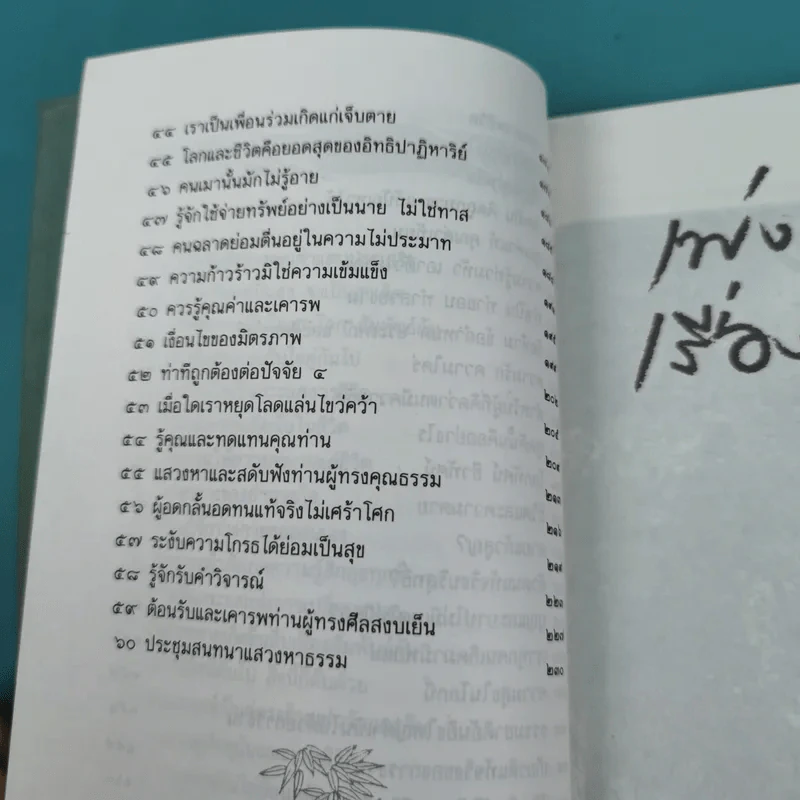 ๔๔ เราเป็นเพื่อนร่วมเกิดแก่เจ็บตาย
๔๕ โลกและชีวิตคือยอดสุดของอิทธิปาฏิหาริย์
๔๖ คนเมานั้นมักไม่รู้อาย
๔๗ รู้จักใช้จ่ายทรัพย์อย่างเป็นนาย ไม่ใช่ทาส
๔๘ คนฉลาดย่อมตื่นอยู่ในความไม่ประมาท
๔๙ ความก้าวร้าวมิใช่ความเข้มแข็ง
๕๐ ควรรู้คุณค่าและเคารพ
๕๑ เงื่อนไขของมิตรภาพ
๕๒ ท่าทีถูกต้องต่อปัจจัย ๔ ๒๐๒
๕๓ เมื่อใดเราหยุดโลดแล่นไขว่คว้า ๒๐๕
๕๔ รู้คุณและทดแทนคุณท่าน ๒๐๙
๕๕ แสวงหาและสดับฟังท่านผู้ทรงคุณธรรม ๒๑๓
๕๖ ผู้อดกลั้นอดทนแท้จริงไม่เศร้าโศก ๒๑๖
๕๗ ระงับความโกรธได้ย่อมเป็นสุข ๒๑๙
๕๘ รู้จักรับคำวิจารณ์ ๒๒๓
๕๙ ต้อนรับและเคารพท่านผู้ทรงศีลสงบเย็น ๒๒๗
๖๐ ประชุมสนทนาแสวงหาธรรม ๒๓๐
เพ่ง
เรื่อง